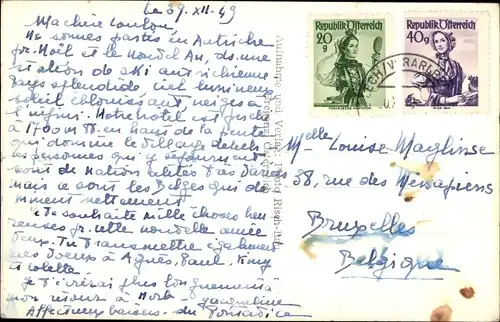 Le 29. XII. 49
Ma chère Loulou
Ns sommes partis en Autriche
pr. Noël et le Nouvel An, ds. une
station de ski autrichienne
Pays splendide ciel lumineux
soleil éblouissant neiges à
l'infini. Notre hôtel est
à 1700 m en haut de la pente
qui domine le village de Lech
les personnes qui y séjournent
sont de nationalités
mais ce sont les Belges qui do-
minent nettement
Je te souhaite mille choses heu-
reuses pr. cette nouvelle année
Tu transmettre également
mes voeux à Agnès, Paul,
et Colette
Je t'écrirai plus longuement à
mon retour à Jacqueline
Affectueux baisers
Aufnahme und Verlag Risch-Lau
Bregenz
Republik Österreich
20 g
Republik Österreich
40 g
LECH/VORARLBERG
Melle Louise Mayhisse
38, rue des Ménapiens
Bruxelles
Belgique